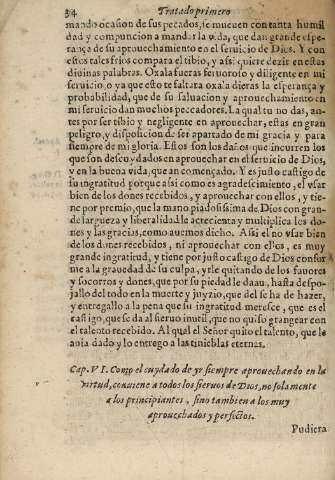 34 Tratado primero
mando ocasion de sus pecados, se mueuen con tanta humil
dad y compuncion a mandar la vida, que dan grande espe-
rança de su aprouechamiento en el seruicio de Dios. Y con
estos tales frios compara el tibio, y assi quiere dezir en estas
diuinas palabras. Oxala fueras feruoroso y diligente en mi
seruicio, o ya que esto te faltara oxala dieras la esperança y
probabilidad, que de su saluacion y aprouechamiento en
mi seruicio dan muchos pecadores. La qual tu no das, an-
tes por ser tibio y negligente en aprouechar, estas en gran
peligro, y disposicion de ser apartado de mi gracia y para
siempre de mi gloria. Estos son los daños que incurren los
que son descuydados en aprouechar en el seruicio de Dios,
y en la buena vida, que an començado. Y es justo castigo de
su ingratitud porque assi como es agradescimiento, el vsar
bien de los dones recebidos, y aprouechar con ellos, y tie-
ne por premio, que la mano piadosissima de Dios con gran-
de largueza y liberalidad le acrecienta y multiplica los do-
nes y las gracias, como auemos dicho. Assi el no vsar bien
de los dones recebidos, ni aprouechar con ellos, es muy
grande ingratitud, y tiene por justo castigo de Dios confor
me a la grauedad de su culpa, yrle quitando de los fauores
y socorros y dones, que por su piedad le daua, hasta despo-
jallo del todo en la muerte y juyzio, que del se ha de hazer,
y entregallo a la pena que su ingratitud meresce, que es el
castigo, que se da al sieruo inutil, que no quiso grangear con
el talento recebido. Al qual el Señor quito el talento, que le
auia dado y lo entrego a las tinieblas eternas.
Cap. VI. Como el cuydado de yr siempre aprouechando en la
virtud, conuiene a todos los sieruos de Dios, no solamente
a los principiantes, sino tambien a los muy
aprouechados y perfectos.
Pudiera